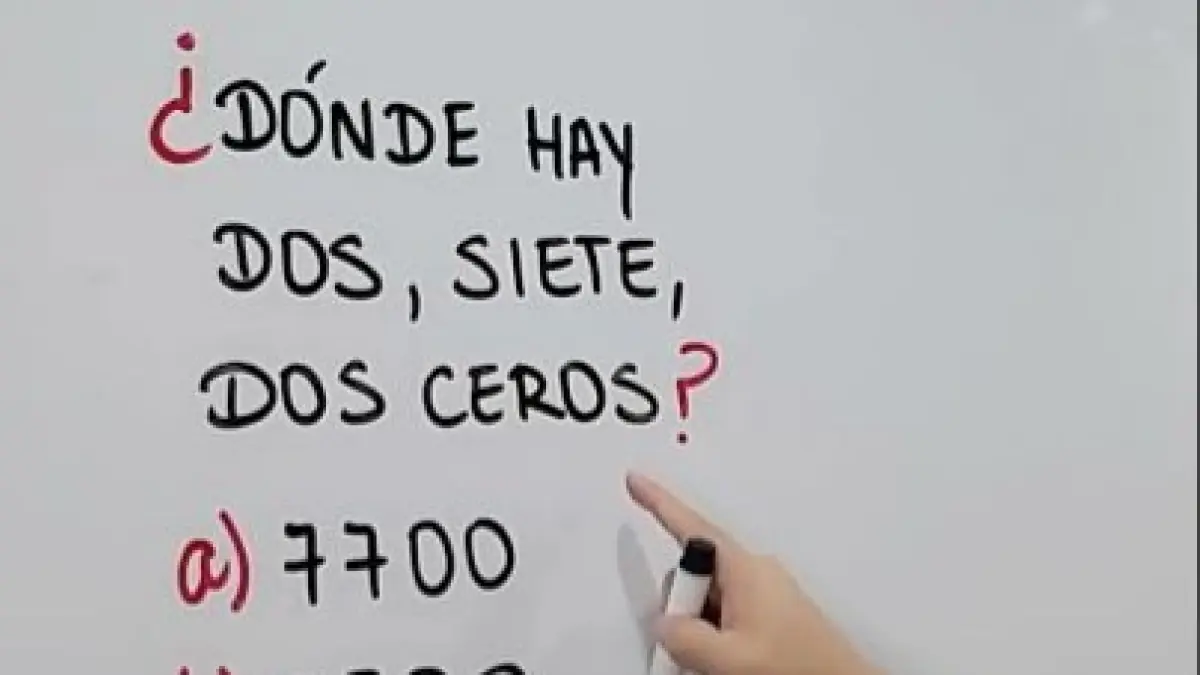 ¿DÓNDE HAY
DOS, SIETE,
DOS CEROS?
a) 7700